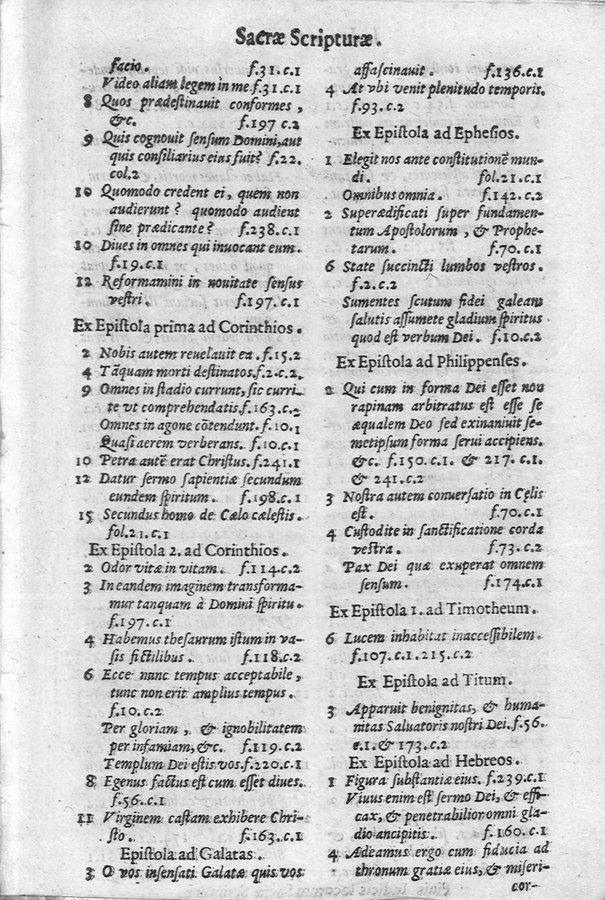 Sacræ Scripturæ.
facio. f.31.c.1
Video aliam legem in me f.31.c.1
8 Quos prædestinauit conformes,
&c. f.197 c.2
9 Quis cognouit sensum Domini, aut
quis consiliarius eius fuit? f.22.
col.2
10 Quomodo credent ei, quem non
audierunt? quomodo audient
sine prædicante? f.238.c.1
10 Diues in omnes qui inuocant eum.
f.19.c.1
12 Reformamini in nouitate sensus
vestri. f.197.c.1
Ex Epistola prima ad Corinthios.
2 Nobis autem reuelauit ea. f.15.2
4 Tāquam morti destinatos. f.2.c.2.
9 Omnes in stadio currunt, sic curri-
te vt comprehendatis. f.163.c.2
Omnes in agone cōtendunt. f.10.1
Quasi aerem verberans. f.10.c.1
10 Petra autē erat Christus. f.241.1
12 Datur sermo sapientiæ secundum
eundem spiritum. f.198.c.1
15 Secundus homo de Cælo cælestis.
fol.21.c.1
Ex Epistola 2. ad Corinthios.
2 Odor vitæ in vitam. f.114.c.2
3 In eandem imaginem transforma-
mur tanquam à Domini spiritu.
f.197.c.1
4 Habemus thesaurum istum in va-
sis fictilibus. f.118.c.2
6 Ecce nunc tempus acceptabile,
tunc non erit amplius tempus.
f.10.c.2
Per gloriam, & ignobilitatem
per infamiam, &c. f.119.c.2
Templum Dei estis vos. f.220.c.1
8 Egenus factus est cum esset diues.
f.56.c.1
11 Virginem castam exhibere Chri-
sto. f.163.c.2
Epistola ad Galatas.
3 O vos insensati Galatæ quis vos
affascinauit. f.136.c.1
4 At vbi venit plenitudo temporis.
f.93.c.2
Ex Epistola ad Ephesios.
1 Elegit nos ante constitutionē mun-
di. fol.21.c.1
Omnibus omnia. f.142.c.2
2 Superædificati super fundamen-
tum Apostolorum, & Prophe-
tarum. f.70.c.1
6 State succincti lumbos vestros.
f.2.c.2
Sumentes scutum fidei galeam
salutis assumete gladium spiritus
quod est verbum Dei. f.10.c.2
Ex Epistola ad Philippenses.
2 Qui cum in forma Dei esset non
rapinam arbitratus est esse se
æqualem Deo sed exinaniuit se-
metipsum forma serui accipiens.
&c. f.150.c.1. & 217.c.1.
& 241.c.2
3 Nostra autem conuersatio in Cęlis
est. f.70.c.1
4 Custodite in sanctificatione corda
vestra. f.73.c.2
Pax Dei quæ exuperat omnem
sensum. f.174.c.1
Ex Epistola 1. ad Timotheum.
6 Lucem inhabitat inaccessibilem.
f.107.c.1.215.c.2
Ex Epistola ad Titum.
3 Apparuit benignitas, & huma-
nitas Saluatoris nostri Dei. f.56.
c.1. & 173.c.2
Ex Epistola ad Hebreos.
1 Figura substantiæ eius. f.239.c.1
Viuus enim est sermo Dei, & effi-
cax, & penetrabilior omni gla-
dio ancipitis. f.160.c.1
4 Adeamus ergo cum fiducia ad
thronum gratiæ eius, & miseri
cor-